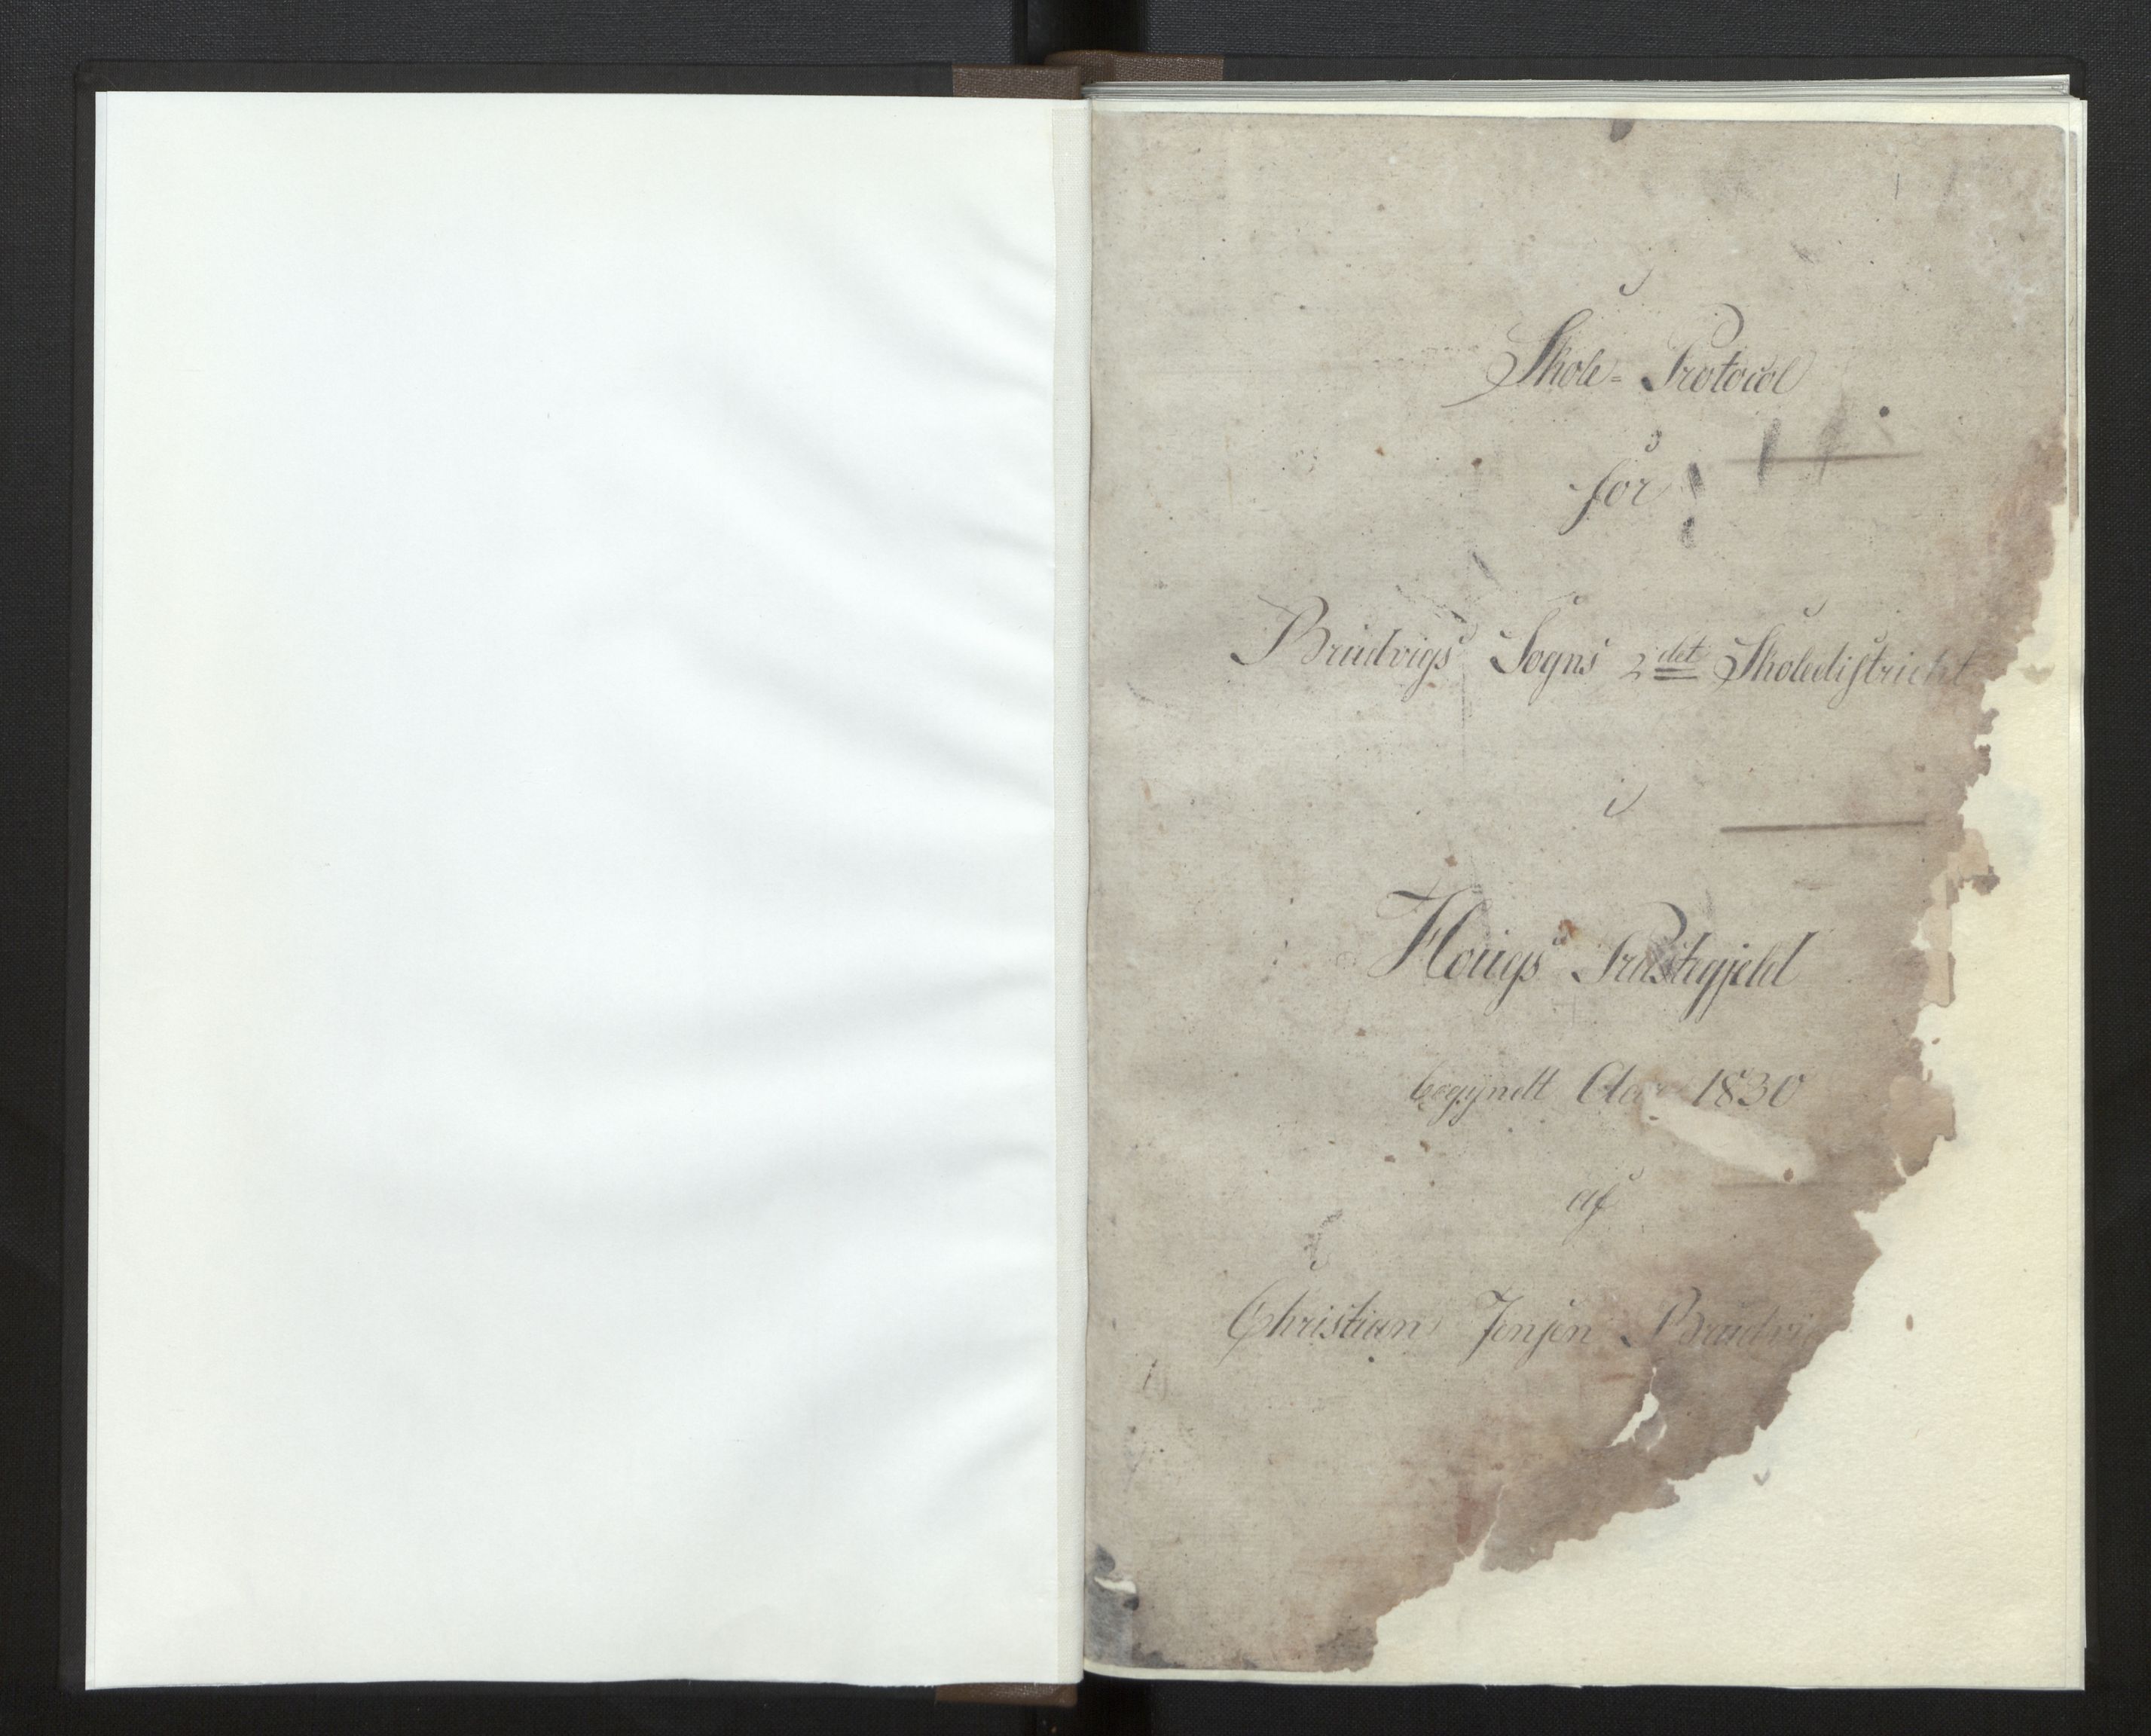 Skole= Protocol
for
Brudvigs Sogns 2det Skoledistrickt
i
Hougs Præstegjeld
begyndt Aar 1830
af
Christian Jensen Brudvi